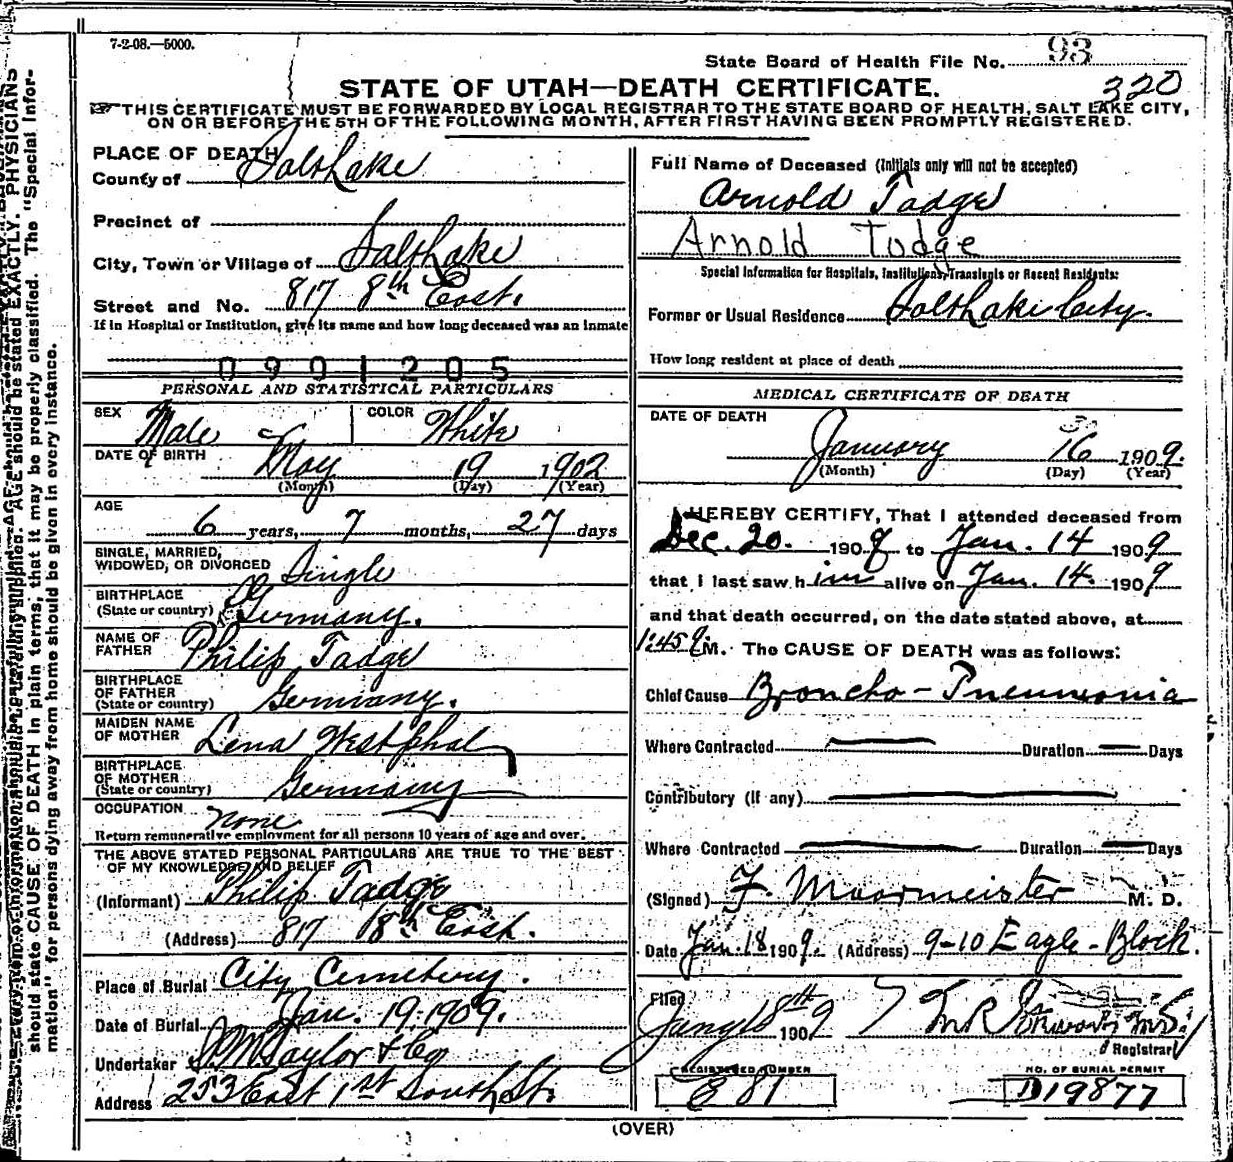 7-2-08.—5000.
State Board of Health File No. 93
320
STATE OF UTAH—DEATH CERTIFICATE.
THIS CERTIFICATE MUST BE FORWARDED BY LOCAL REGISTRAR TO THE STATE BOARD OF HEALTH, SALT LAKE CITY,
ON OR BEFORE THE 5TH OF THE FOLLOWING MONTH, AFTER FIRST HAVING BEEN PROMPTLY REGISTERED.
PLACE OF DEATH
County of Salt Lake
Precinct of
City, Town or Village of Salt Lake
Street and No. 817 8th East.
If in Hospital or Institution, give its name and how long deceased was an inmate
0901205
PERSONAL AND STATISTICAL PARTICULARS
SEX Male COLOR White
DATE OF BIRTH May 19 1902
(Month) (Day) (Year)
AGE
6 years, 7 months, 27 days
SINGLE, MARRIED,
WIDOWED, OR DIVORCED Single
BIRTHPLACE
(State or country) Germany.
NAME OF
FATHER Philip Tadge
BIRTHPLACE
OF FATHER
(State or country) Germany.
MAIDEN NAME
OF MOTHER Lena Westphal
BIRTHPLACE
OF MOTHER
(State or country) Germany
OCCUPATION None
Return remunerative employment for all persons 10 years of age and over.
THE ABOVE STATED PERSONAL PARTICULARS ARE TRUE TO THE BEST
OF MY KNOWLEDGE AND BELIEF
(Informant) Philip Tadge
(Address) 817 8th East.
Place of Burial City Cemetery.
Date of Burial Jan. 19. 1909.
Undertaker S.M. Taylor & Co
Address 253 East 1st South St.
Full Name of Deceased (Initials only will not be accepted)
Arnold Tadge
Arnold Todge
Special Information for Hospitals, Institutions, Transients or Recent Residents:
Former or Usual Residence Salt Lake City.
How long resident at place of death
MEDICAL CERTIFICATE OF DEATH
DATE OF DEATH
January 16 1909.
(Month) (Day) (Year)
I HEREBY CERTIFY, That I attended deceased from
Dec. 20. 1908 to Jan. 14 1909
that I last saw him alive on Jan. 14. 1909
and that death occurred, on the date stated above, at
1:45 P.M. The CAUSE OF DEATH was as follows:
Chief Cause Broncho-Pneumonia
Where Contracted — Duration — Days
Contributory (if any) —
Where Contracted — Duration — Days
(Signed) F. Moormeister M. D.
Date Jan. 18 1909. (Address) 9-10 Eagle-Block.
Filed
Jany 18th 1909
Registrar
REGISTERED NUMBER
E 81
NO. OF BURIAL PERMIT
D19877
(OVER)
should state CAUSE OF DEATH in plain terms, that it may be properly classified. The "Special Infor-
mation" for persons dying away from home should be given in every instance.